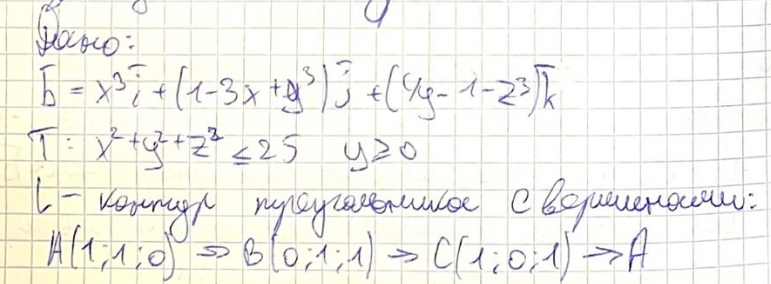 Дано:
b̄ = x³ī + (1-3x+y³)j̄ + (4y-1-z³)k̄
T: x²+y²+z² ≤ 25 y ≥ 0
L - контур треугольника с вершинами:
A(1;1;0) => B(0;1;1) -> C(1;0;1) -> A